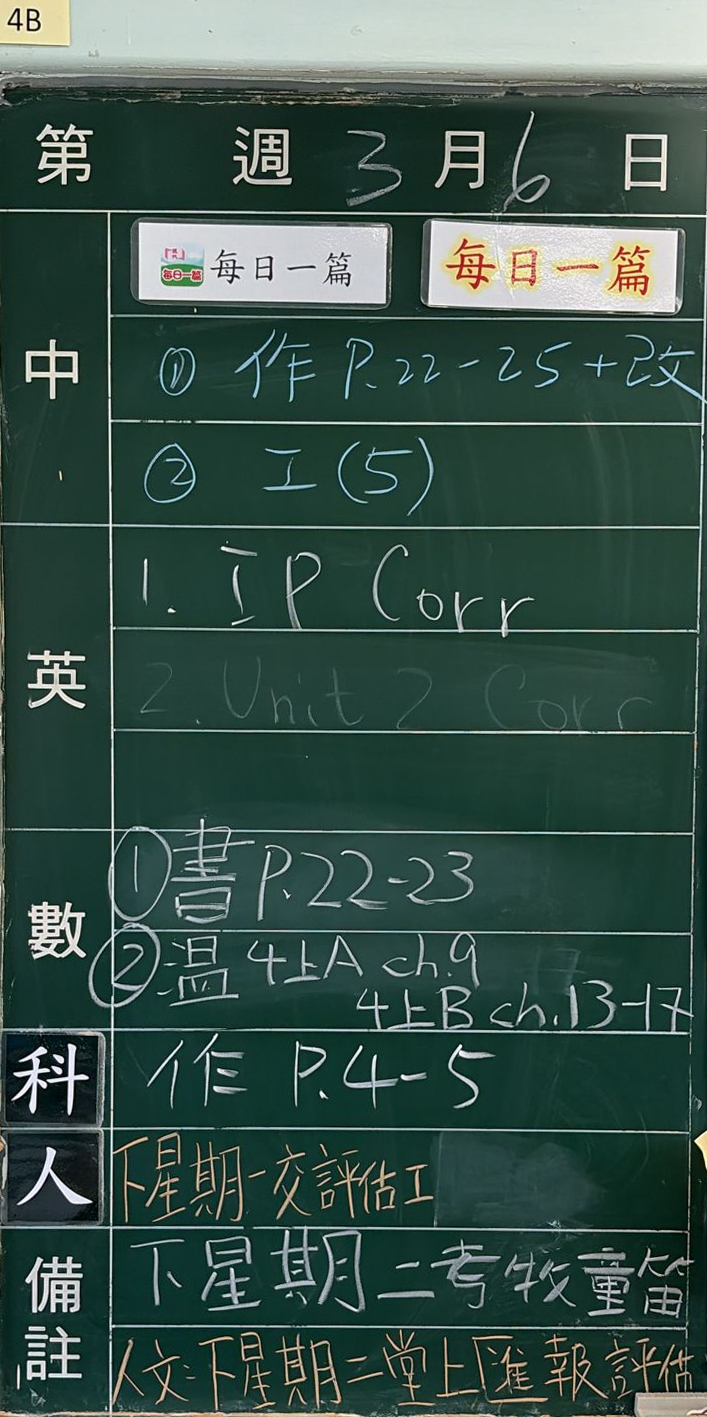 4B
第 週 3 月 6 日
每日一篇 每日一篇
中
① 作 P.22-25+改
② 工(5)
英
1. IP Corr
2. Unit 2 Corr
數
①書 P.22-23
②溫 4上A ch.9
4上B ch.13-17
科 作 P.4-5
人 下星期一交評估工
備註
下星期二考牧童笛
人文:下星期二堂上匯報評估